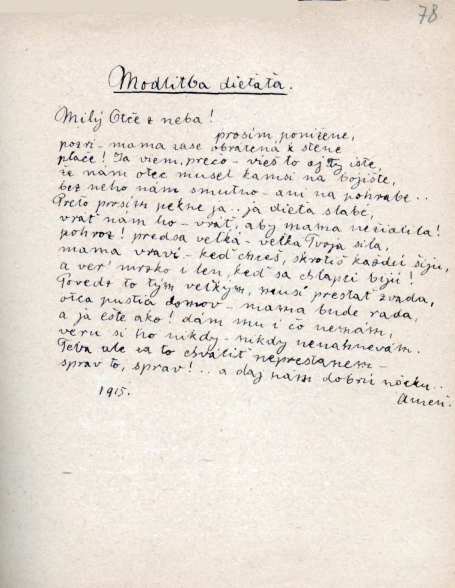 78
Modlitba dieťaťa.
Milý Otče z neba!
prosím ponížene,
pozri – mama zase obrátená k stene
plače! Ja viem, prečo – vieš to aj Ty iste,
že nám otec musel kamsi na bojište,
bez neho nám smutno – ani na pohrabe..
Preto prosím pekne ja – ja dieťa slabé,
vráť nám ho – vráť, aby mama nežialila!
pohroz! predsa veľká – veľká Tvoja sila,
mama vraví – keď chceš, skrotíš každú šiju,
a veď mrzko i len, keď sa chlapci bijú!
Povedz to tým veľkým, musí prestať zvada,
otca pustia domov – mama bude rada,
a ja ešte ako! dám mu i čo nemám,
veru si ho nikdy – nikdy nenahnevám.
Teba ale za to chváliť neprestanem –
sprav to, sprav!.. a daj nám dobrú nôcku..
Amen.
1915.